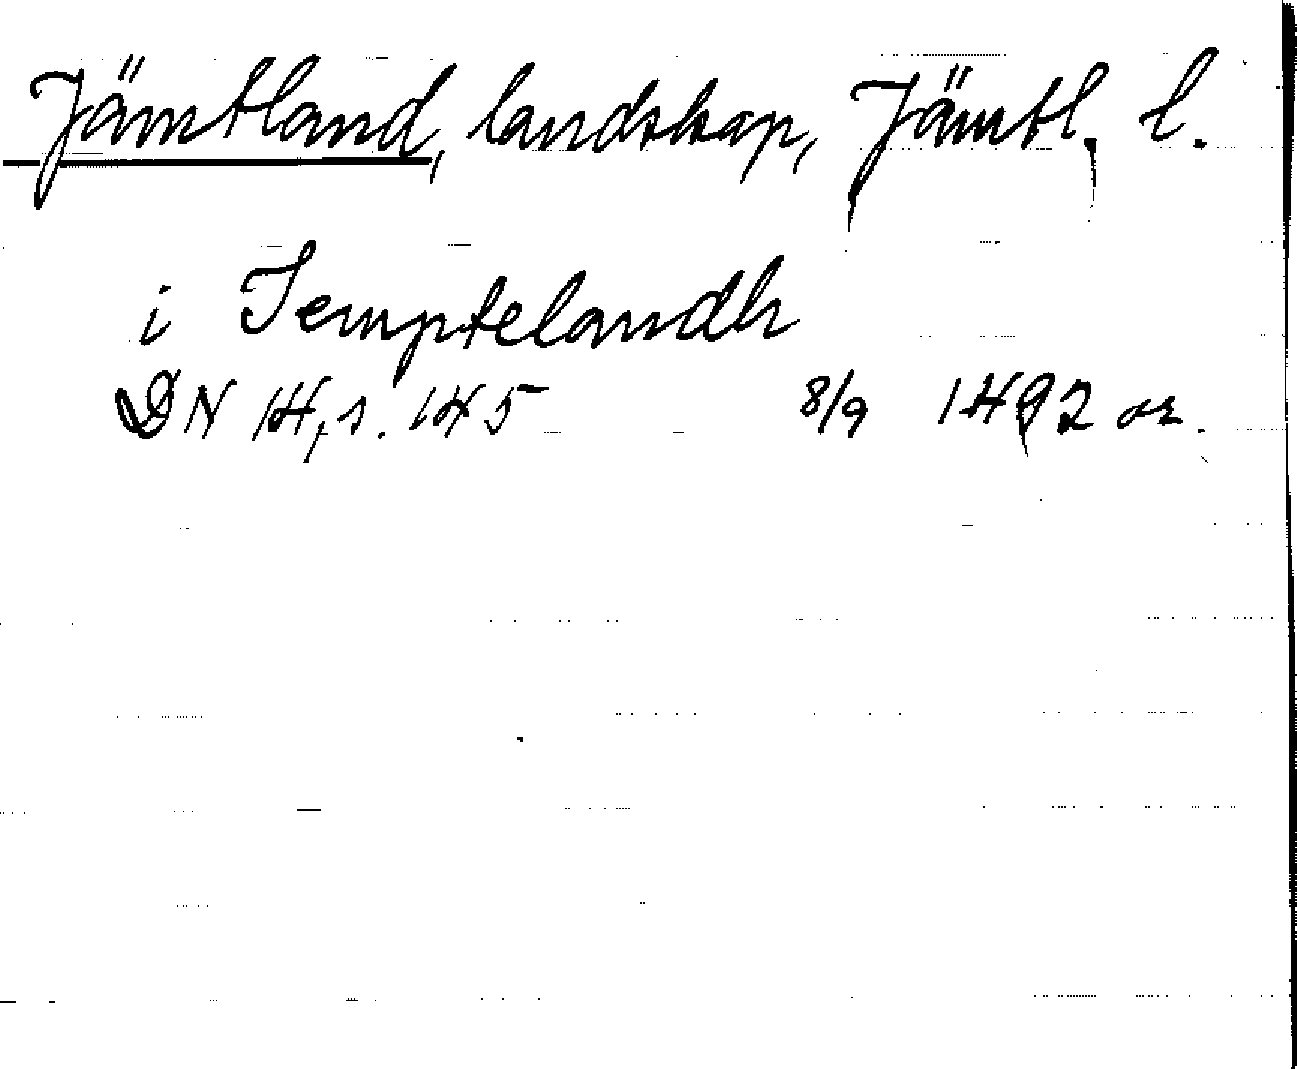 Jämtland, landskap, Jämtl. l.
i Jemptelandh
DN 14, s. 145 8/9 1492 or.